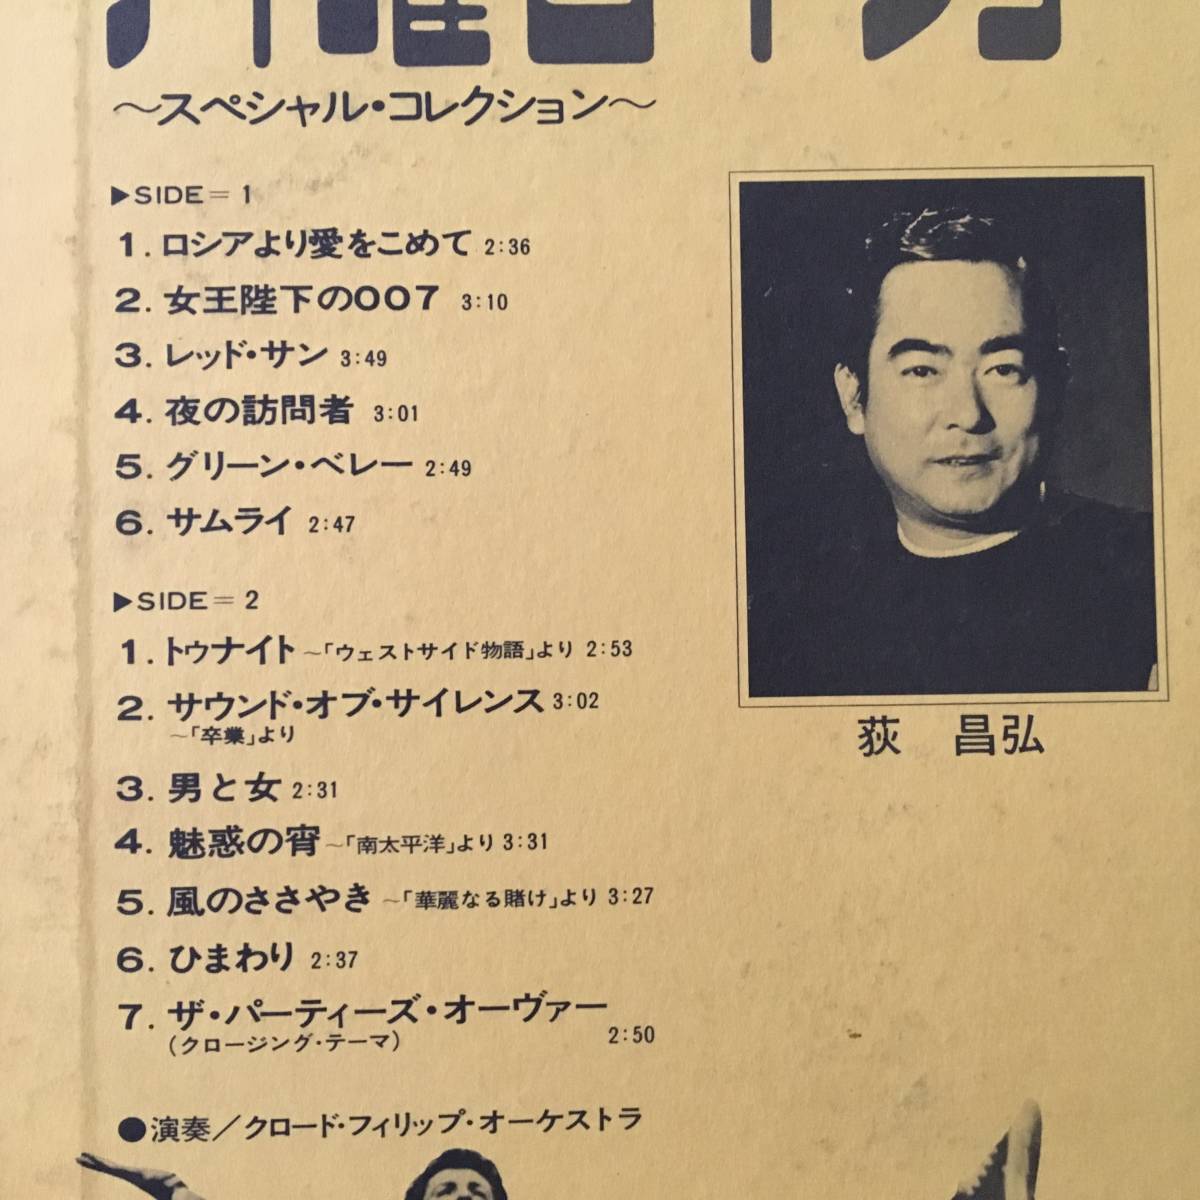 ～スペシャル・コレクション～
▶SIDE=1
1.ロシアより愛をこめて 2:36
2.女王陛下の007 3:10
3.レッド・サン 3:49
4.夜の訪問者 3:01
5.グリーン・ベレー 2:49
6.サムライ 2:47
▶SIDE=2
1.トゥナイト～「ウェストサイド物語」より 2:53
2.サウンド・オブ・サイレンス 3:02
～「卒業」より
3.男と女 2:31
4.魅惑の宵～「南太平洋」より 3:31
5.風のささやき～「華麗なる賭け」より 3:27
6.ひまわり 2:37
7.ザ・パーティーズ・オーヴァー
(クロージング・テーマ) 2:50
●演奏／クロード・フィリップ・オーケストラ
荻 昌弘